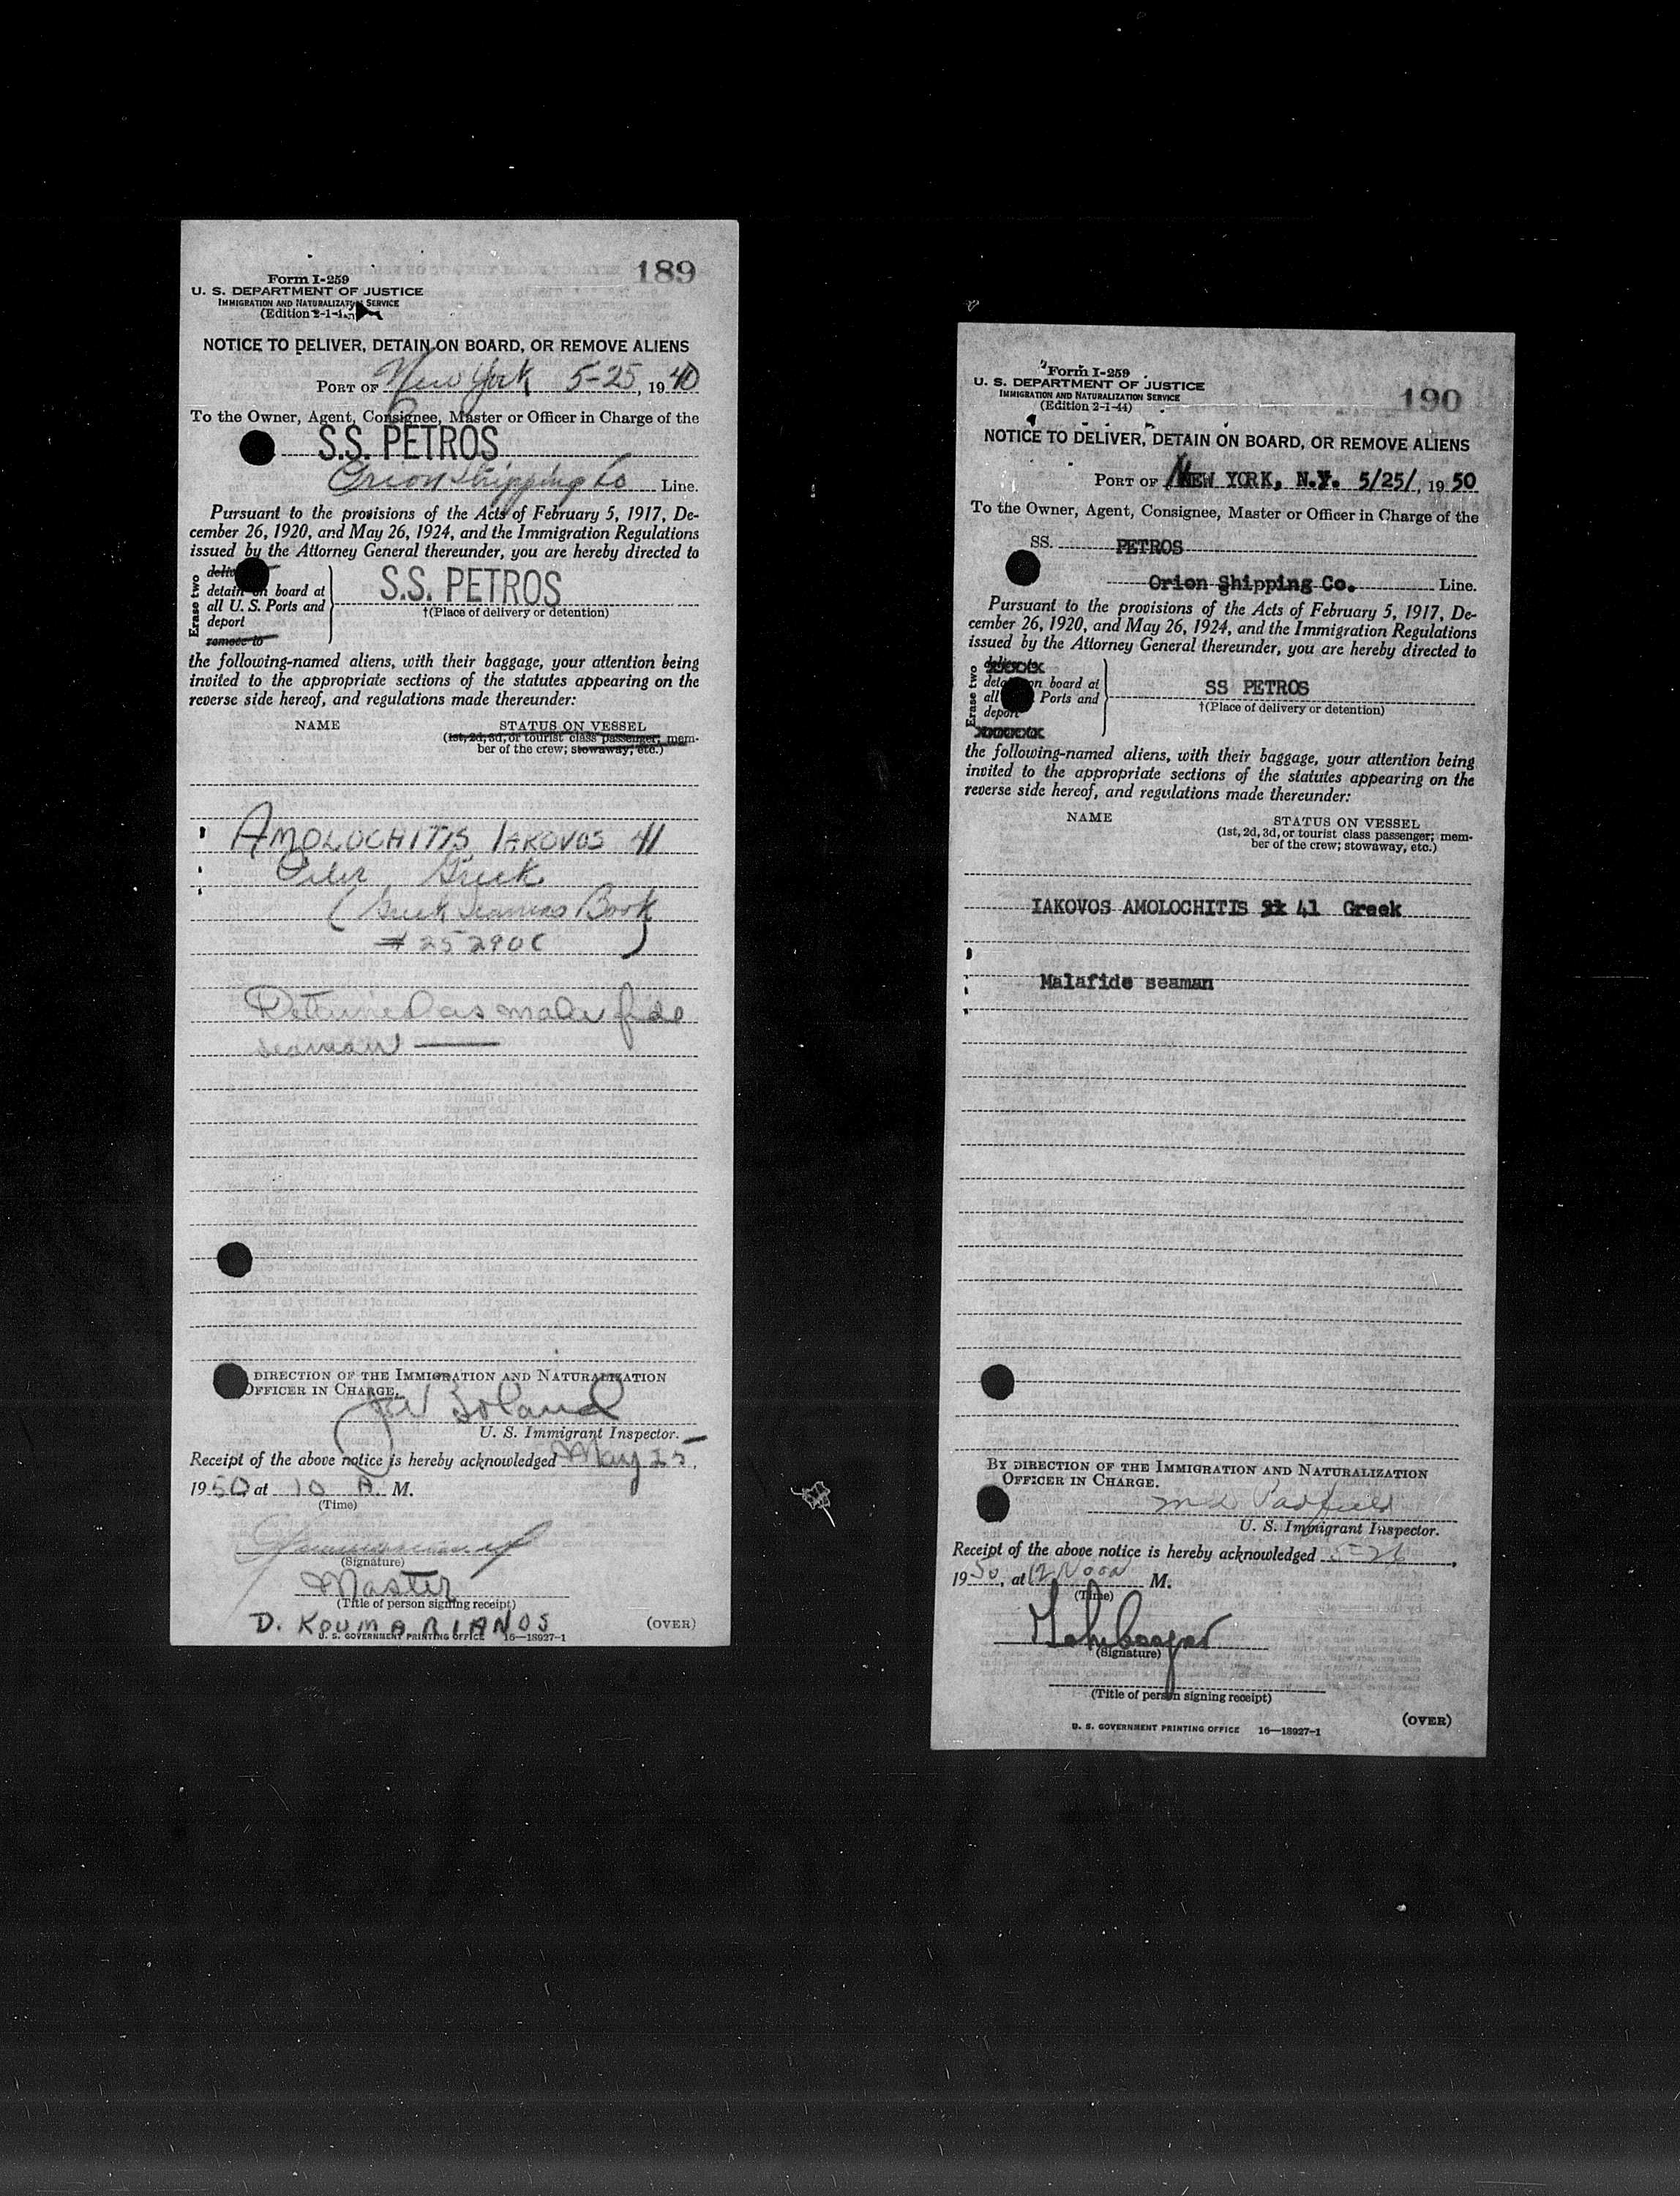 189
Form I-259
U. S. DEPARTMENT OF JUSTICE
IMMIGRATION AND NATURALIZATION SERVICE
(Edition 2-1-4
NOTICE TO DELIVER, DETAIN ON BOARD, OR REMOVE ALIENS
PORT OF New York 5-25, 1940
To the Owner, Agent, Consignee, Master or Officer in Charge of the
S.S. PETROS
Orion Shipping Co Line.
Pursuant to the provisions of the Acts of February 5, 1917, De-
cember 26, 1920, and May 26, 1924, and the Immigration Regulations
issued by the Attorney General thereunder, you are hereby directed to
Erase two
detain on board at
all U. S. Ports and
deport
remove to
S.S. PETROS
†(Place of delivery or detention)
the following-named aliens, with their baggage, your attention being
invited to the appropriate sections of the statutes appearing on the
reverse side hereof, and regulations made thereunder:
NAME STATUS ON VESSEL
(1st, 2d, 3d, or tourist class passenger; mem-
ber of the crew; stowaway, etc.)
AMOLOCHITIS IAKOVOS 41
Oiler Greek
(Greek Seamans Book
# 25290C)
Detained as mala fide
seaman
DIRECTION OF THE IMMIGRATION AND NATURALIZATION
OFFICER IN CHARGE.
Boland
U. S. Immigrant Inspector.
Receipt of the above notice is hereby acknowledged May 25,
1950 at 10 A. M.
(Time)
(Signature)
Master
(Title of person signing receipt)
D. KOUMARIANOS
U. S. GOVERNMENT PRINTING OFFICE 16—18927-1
(OVER)
190
Form I-259
U. S. DEPARTMENT OF JUSTICE
IMMIGRATION AND NATURALIZATION SERVICE
(Edition 2-1-44)
NOTICE TO DELIVER, DETAIN ON BOARD, OR REMOVE ALIENS
PORT OF NEW YORK, N.Y. 5/25/, 1950
To the Owner, Agent, Consignee, Master or Officer in Charge of the
SS. PETROS
Orion Shipping Co. Line.
Pursuant to the provisions of the Acts of February 5, 1917, De-
cember 26, 1920, and May 26, 1924, and the Immigration Regulations
issued by the Attorney General thereunder, you are hereby directed to
Erase two
on board at
all Ports and
deport
xxxxxx
SS PETROS
†(Place of delivery or detention)
the following-named aliens, with their baggage, your attention being
invited to the appropriate sections of the statutes appearing on the
reverse side hereof, and regulations made thereunder:
NAME STATUS ON VESSEL
(1st, 2d, 3d, or tourist class passenger; mem-
ber of the crew; stowaway, etc.)
IAKOVOS AMOLOCHITIS 41 Greek
Malafide seaman
BY DIRECTION OF THE IMMIGRATION AND NATURALIZATION
OFFICER IN CHARGE.
Padfield
U. S. Immigrant Inspector.
Receipt of the above notice is hereby acknowledged 5-26,
1950, at 12 Noon M.
(Time)
(Signature)
(Title of person signing receipt)
U. S. GOVERNMENT PRINTING OFFICE 16—18927-1
(OVER)